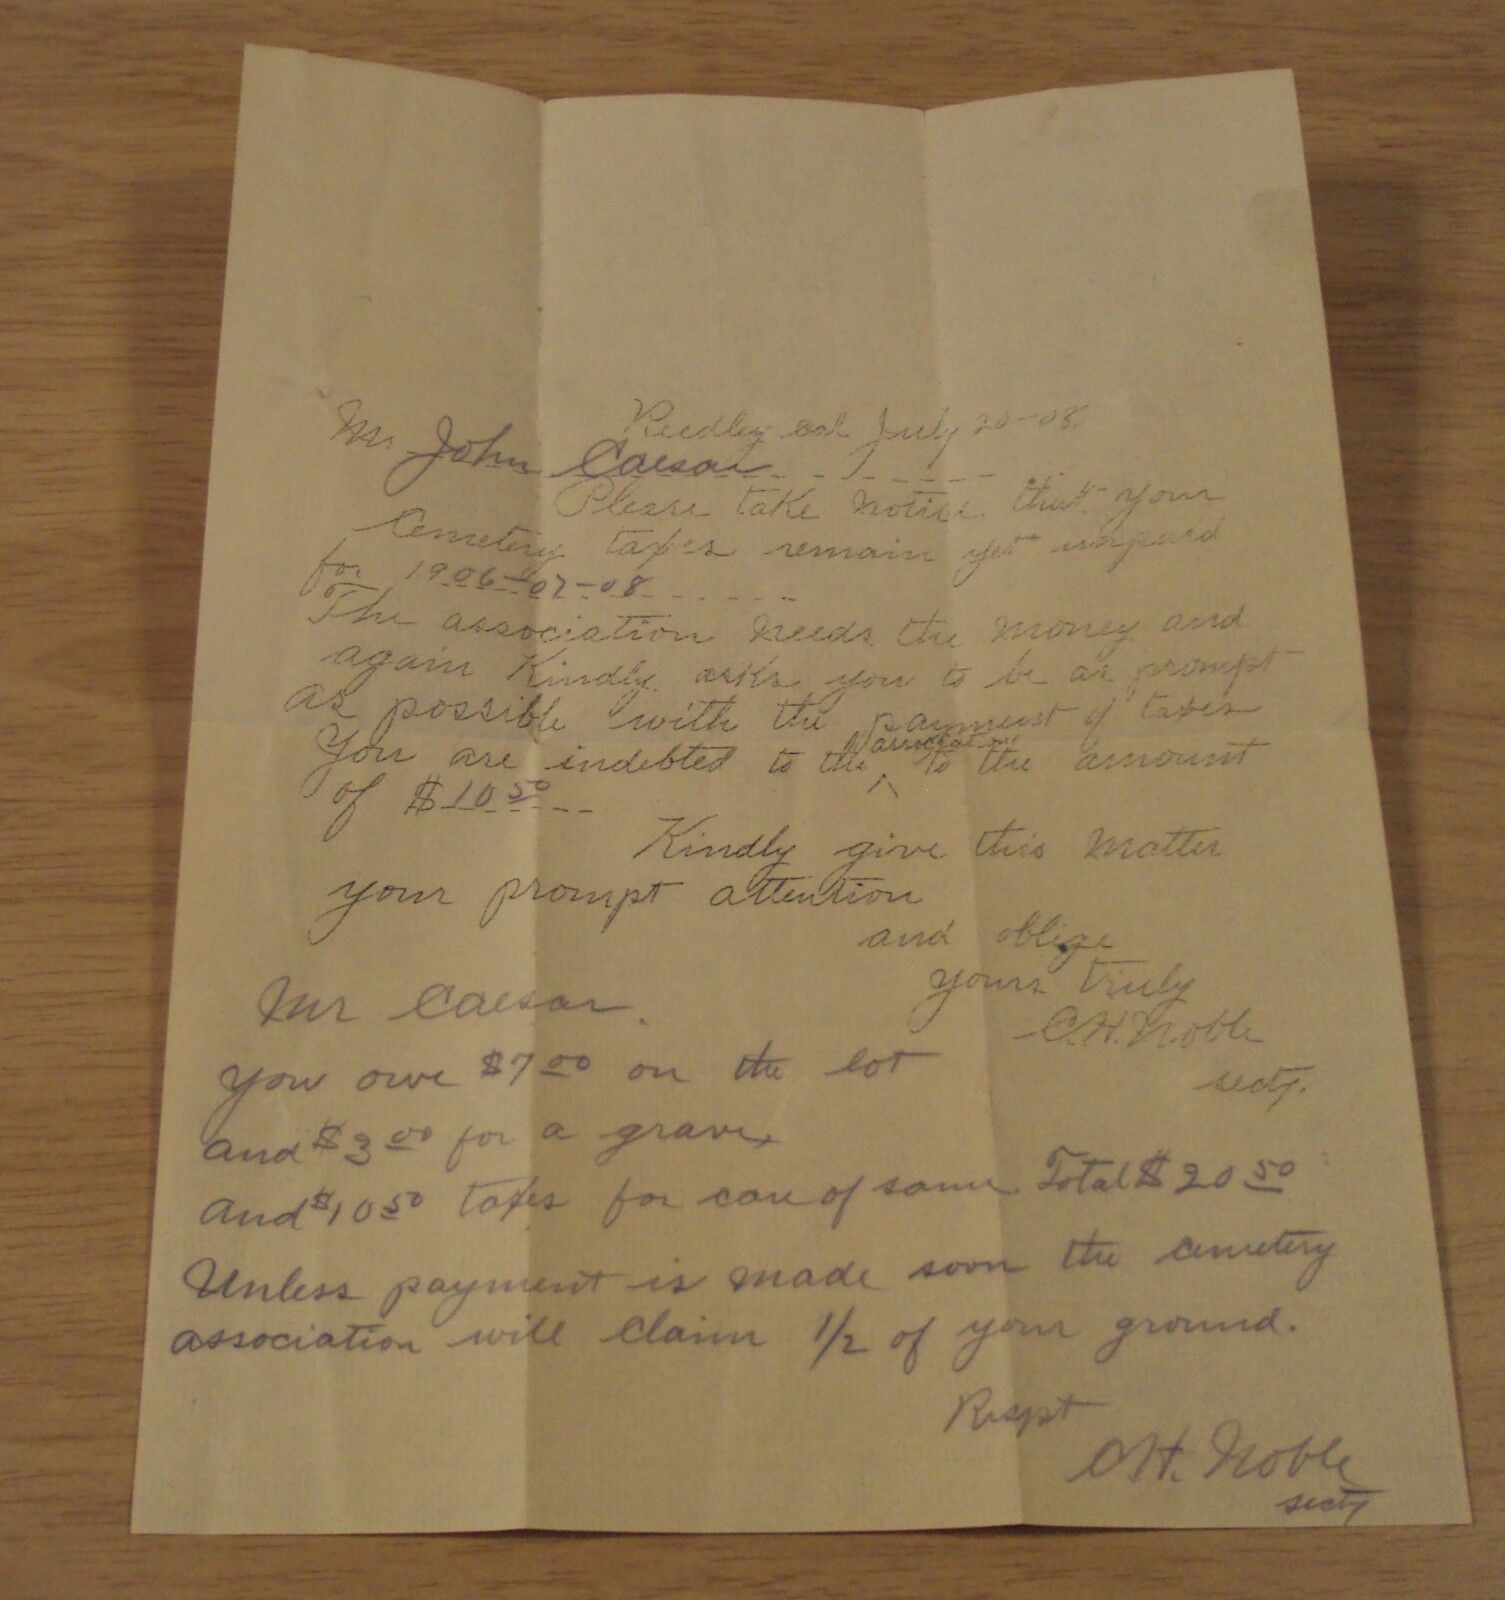 Reedley Cal July 20-08.
Mr John Caesar
Please take notice that your
Cemetery taxes remain yet unpaid
for 1906-07-08
The association needs the money and
again Kindly asks you to be as prompt
as possible with the payment of taxes
You are indebted to the association to the amount
of $10 50
Kindly give this matter
your prompt attention
and oblige
yours truly
C.H. Noble
secty.
Mr Caesar.
You owe $7 00 on the lot
and $3 00 for a grave,
and $10 50 taxes for care of same. Total $20 50
Unless payment is made soon the cemetery
association will claim 1/2 of your ground.
Respt
C H. Noble
secty